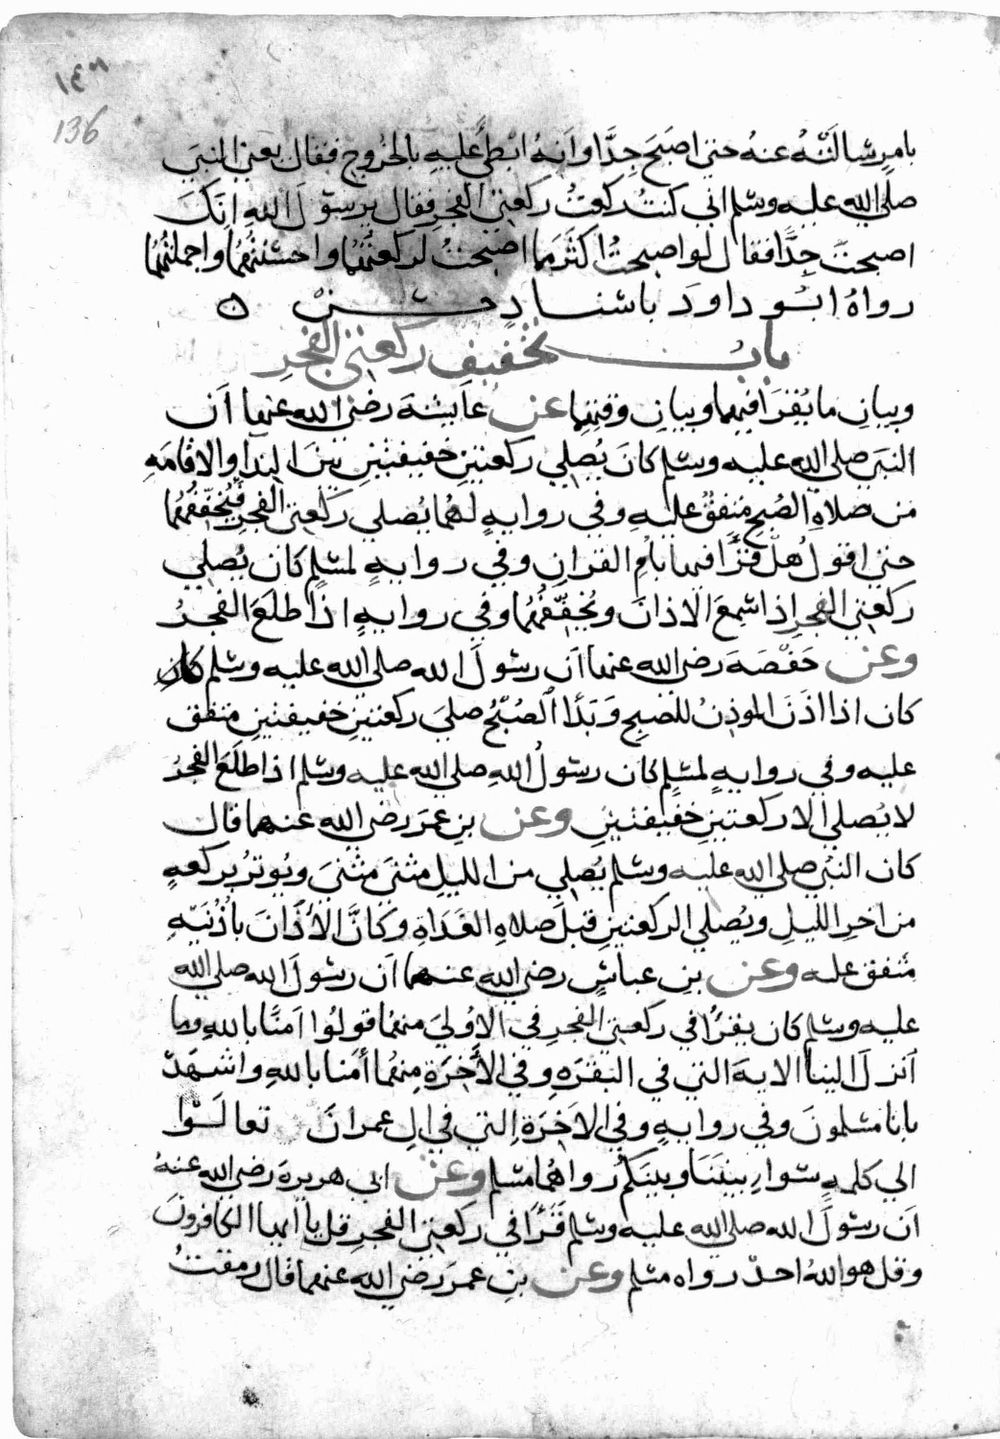 ١٣٦
136
بامر سالته عنه حتى اصبح جدا وانه ابطئ عليه بالخروج فقال يعني النبي
صلى الله عليه وسلم اني كنت ركعت ركعتي الفجر فقال يرسول الله انك
اصبحت جدا فقال لو اصبحت اكثر مما اصبحت لركعتهما واحسنتهما واجملتهما
رواه ابو داود باسناد حسن ٥
باب تخفيف ركعتي الفجر
وبيان ما يقرا فيهما وبيان وقتهما عن عايشة رضي الله عنها ان
النبي صلى الله عليه وسلم كان يصلي ركعتين خفيفتين بين الندا والاقامه
من صلاه الصبح متفق عليه وفي روايه لهما يصلي ركعتي الفجر فيخففهما
حتى اقول هل قرا فيهما بام القران وفي روايه لمسلم كان يصلي
ركعتي الفجر اذا سمع الاذان ويخففهما وفي روايه اذا طلع الفجر
وعن حفصة رضي الله عنها ان رسول الله صلى الله عليه وسلم كان
كان اذا اذن الموذن للصبح وبدا الصبح صلى ركعتين خفيفتين متفق
عليه وفي روايه لمسلم كان رسول الله صلى الله عليه وسلم اذا طلع الفجر
لا يصلي الا ركعتين خفيفتين وعن بن عمر رضي الله عنهما قال
كان النبي صلى الله عليه وسلم يصلي من الليل مثنى مثنى ويوتر بركعه
من اخر الليل ويصلي الركعتين قبل صلاه الغداه وكان الاذان باذنيه
متفق عليه وعن بن عباس رضي الله عنهما ان رسول الله صلى الله
عليه وسلم كان يقرا في ركعتي الفجر في الاولى منهما قولوا امنا بالله وما
انزل الينا الاية التي في البقره وفي الاخرة منهما امنا بالله واشهد
بانا مسلمون وفي روايه وفي الاخرة التي في ال عمران تعالوا
الى كلمه سواء بيننا وبينكم رواهما مسلم وعن ابي هريرة رضي الله عنه
ان رسول الله صلى الله عليه وسلم قرا في ركعتي الفجر قل يا ايها الكافرون
وقل هو الله احد رواه مسلم وعن بن عمر رضي الله عنهما قال رمقت